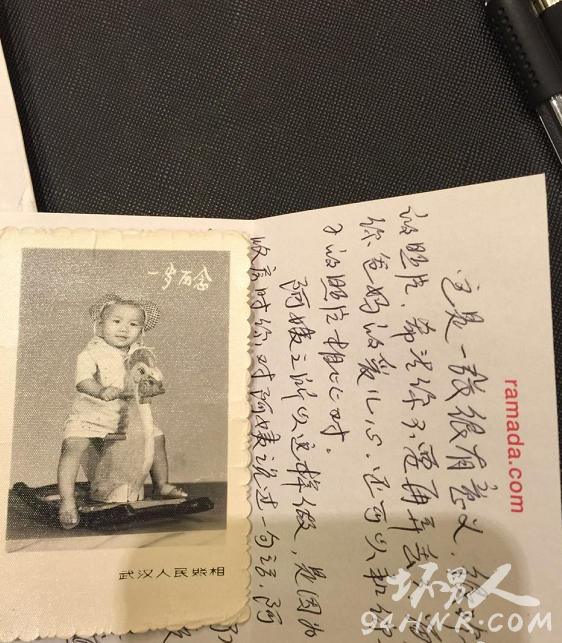 ramada.com
这是一张很有意义、
的照片、希望你不要再弄丢
你爸妈的爱儿心.还可以和你
的照片相比对。
阿姨之所以这样做,是因为
时你对阿姨说过一句话.阿
一岁留念
武汉人民照相
坏男人
94HNR.COM